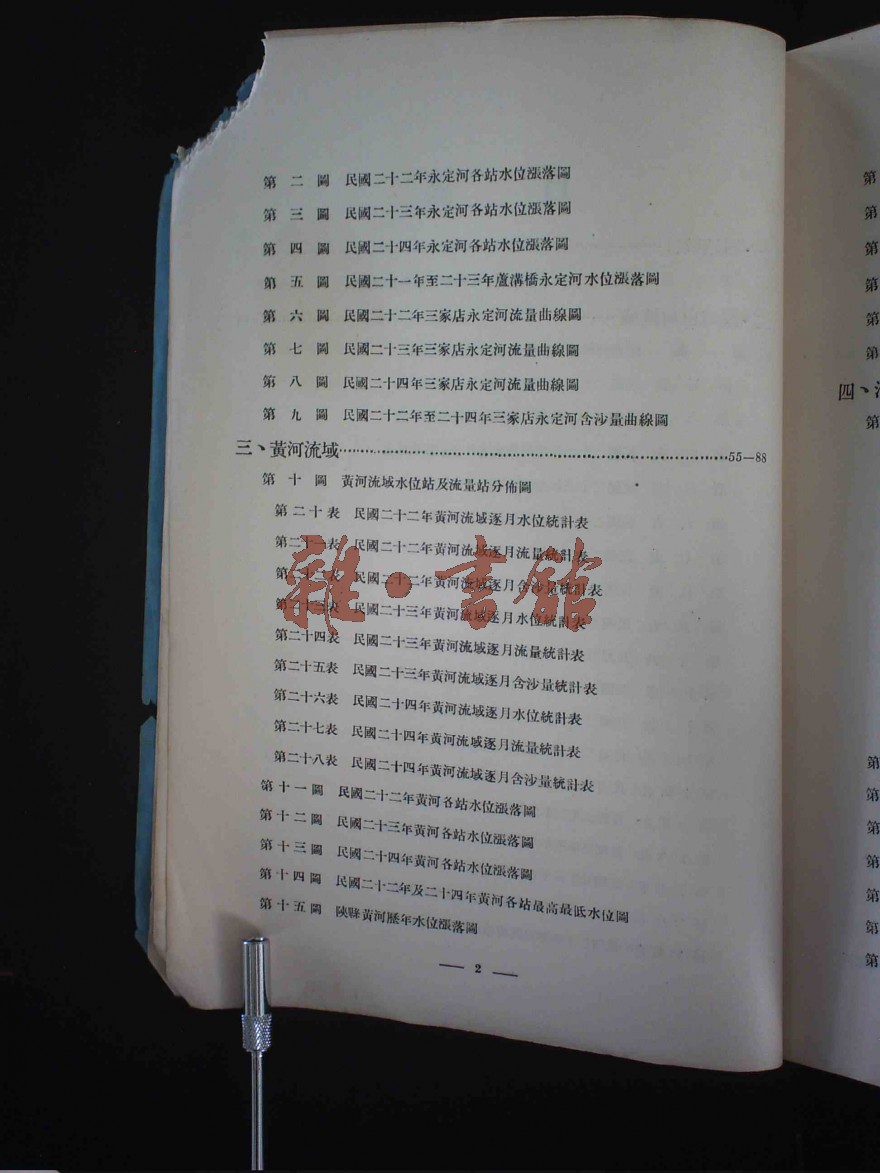 第二圖 民國二十二年永定河各站水位漲落圖
第三圖 民國二十三年永定河各站水位漲落圖
第四圖 民國二十四年永定河各站水位漲落圖
第五圖 民國二十一年至二十三年蘆溝橋永定河水位漲落圖
第六圖 民國二十二年三家店永定河流量曲線圖
第七圖 民國二十三年三家店永定河流量曲線圖
第八圖 民國二十四年三家店永定河流量曲線圖
第九圖 民國二十二年至二十四年三家店永定河含沙量曲線圖
三、黃河流域……………………………………………55—88
第十圖 黃河流域水位站及流量站分佈圖
第二十表 民國二十二年黃河流域逐月水位統計表
第二十一表 民國二十二年黃河流域逐月流量統計表
第二十二表 民國二十二年黃河流域逐月含沙量統計表
第二十三表 民國二十三年黃河流域逐月水位統計表
第二十四表 民國二十三年黃河流域逐月流量統計表
第二十五表 民國二十三年黃河流域逐月含沙量統計表
第二十六表 民國二十四年黃河流域逐月水位統計表
第二十七表 民國二十四年黃河流域逐月流量統計表
第二十八表 民國二十四年黃河流域逐月含沙量統計表
第十一圖 民國二十二年黃河各站水位漲落圖
第十二圖 民國二十三年黃河各站水位漲落圖
第十三圖 民國二十四年黃河各站水位漲落圖
第十四圖 民國二十二年及二十四年黃河各站最高最低水位圖
第十五圖 陝縣黃河歷年水位漲落圖
— 2 —
雜·書館
第
第
第
第
第
第
四、
第
第
第
第
第
第
第
第